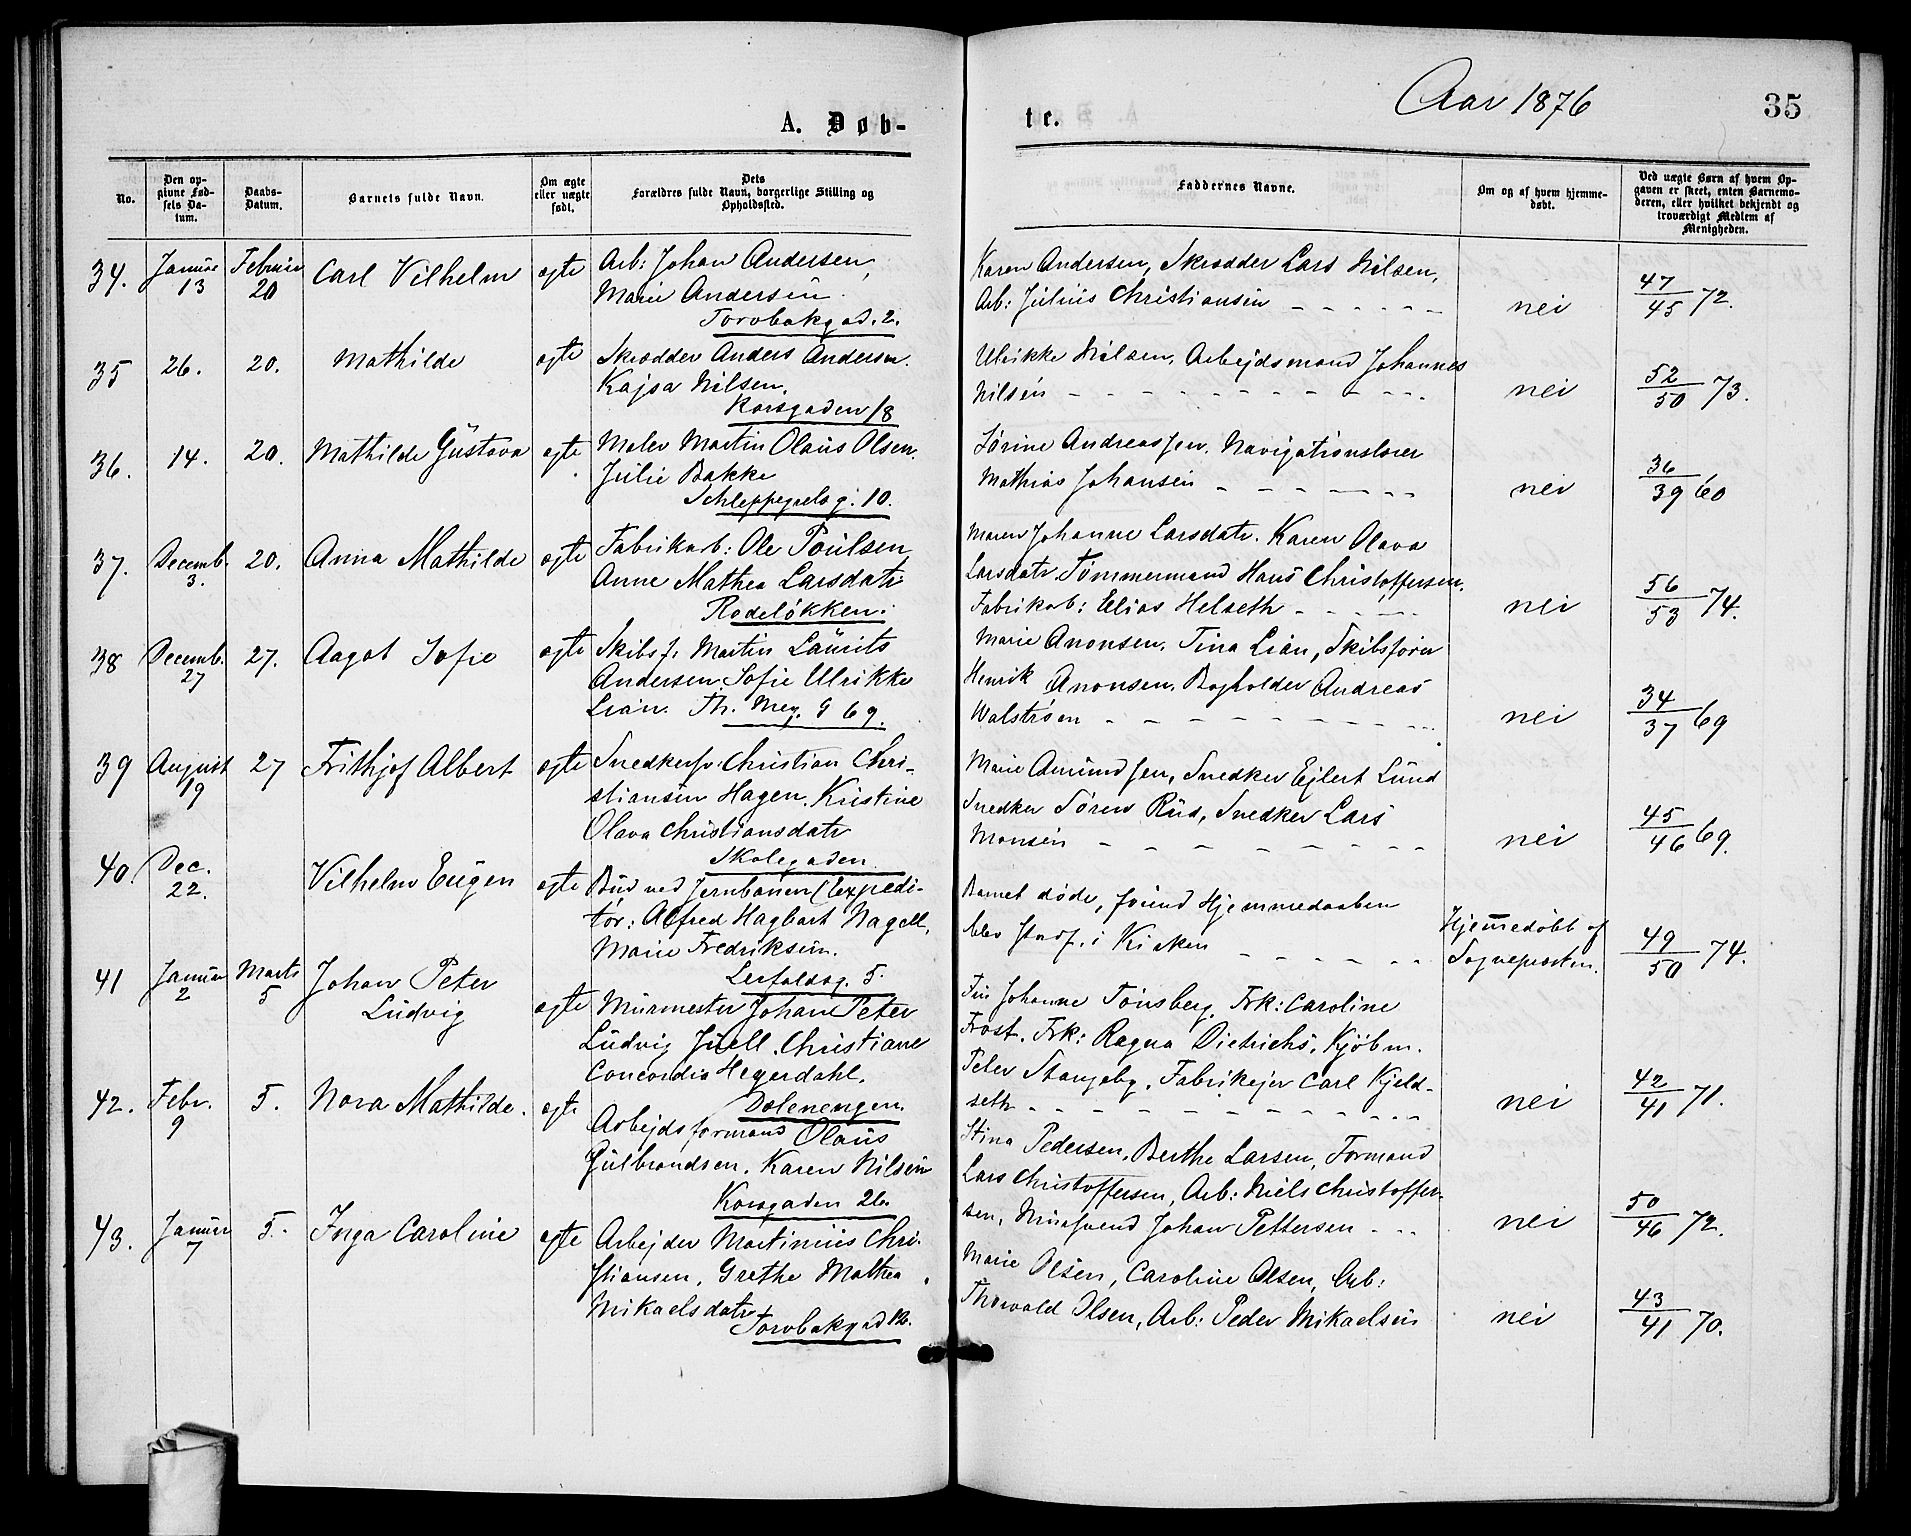 Aar 1876
35
A. Døb-
te.
No.
Den op-
givne Fød-
sels Da-
tum.
Daabs-
Datum.
Barnets fulde Navn.
Om ægte
eller uægte
født.
Dets
Forældres fulde Navn, borgerlige Stilling og
Opholdssted.
Faddernes Navne.
Om og af hvem hjemme-
døbt.
Ved uægte Børn af hvem Op-
gaven er skeet, enten Barnemo-
deren, eller hvilket bekjendt og
troværdigt Medlem af
Menigheden.
34. Januar 13 Februar 20 Carl Vilhelm ægte
Arb: Johan Andersen,
Marie Andersen.
Torvbakgad. 2.
Karen Andersen, Skrædder Lars Nilsen,
Arb: Julius Christiansen nei 47/45 72.
35 26. 20. Mathilde ægte
Skrædder Anders Andersen.
Kajsa Nilsen.
Korsgaden 18
Ulrikke Nilsen, Arbejdsmand Johannes
Nilsen nei 52/50 73.
36. 14. 20. Mathilde Gustava ægte
Maler Martin Olaus Olsen.
Julie Bakke
Schleppegrelsg. 10.
Sørine Andreassen, Navigationslærer
Mathias Johansen nei 36/39 60
37. Decemb. 3. 20. Anna Mathilde ægte
Fabrikarb: Ole Poulsen
Anne Mathea Larsdatr.
Rodeløkken.
Maren Johanne Larsdatr. Karen Olava
Larsdatr. Tømmermand Hans Christoffersen.
Fabrikarb: Elias Helseth nei 56/53 74.
38 Decemb. 27 27. Aagot Sofie ægte
Skibsf. Martin Laurits
Andersen, Sofie Ulrikke
Lian. Th. Mey. G 69.
Marie Anonsen, Tina Lian, Skibsfører
Henrik Anonsen, Bogholder Andreas
Walstrøm nei 34/37 69
39 August 19 27 Frithjof Albert ægte
Snedkersv. Christian Chri-
stiansen Hagen, Kristine
Olava Christiansdatr
Skolegaden
Marie Amundsen, Snedker Ejlert Lund
Snedker Søren Rud, Snedker Lars
Monsen nei 45/46 69.
40. Dec. 22. Vilhelm Eugen ægte
Bud ved Jernbanen (Expedi-
tør: Alfred Hagbart Nagell,
Marie Fredriksen.
Lerfaldsg. 5.
Barnet døde, forind Hjemmedaaben
blev stadf. i Kirken
Hjemmedøbt af
Sognepresten. 49/50 74.
41 Januar 2 Marts 5 Johan Peter
Ludvig ægte
Murmester Johan Peter
Ludvig Juell, Christiane
Concordia Hegerdahl.
Dælenengen.
Fru Johanne Tønsberg, Frk: Caroline
Frost, Frk: Ragna Dietrichs, Kjøbm.
Peter Stangeby, Fabrikejer Carl Kjeld-
seth nei 42/41 71.
42. Febr. 9 5. Nora Mathilde. ægte
Arbejdsformand Olaus
Gulbrandsen, Karen Nilsen
Korsgaden 26.
Stina Pedersen, Berthe Larsen, Formand
Lars Christoffersen, Arb: Niels Christoffer-
sen, Mursvend Johan Pettersen nei 50/46 72.
43. Januar 7 5. Inga Caroline ægte
Arbejder Martinius Chri-
stiansen, Grethe Mathea
Mikaelsdatr
Torvbakgad 12.
Marie Olsen, Caroline Olsen, Arb:
Thorvald Olsen, Arb: Peder Mikaelsen nei 43/41 70.